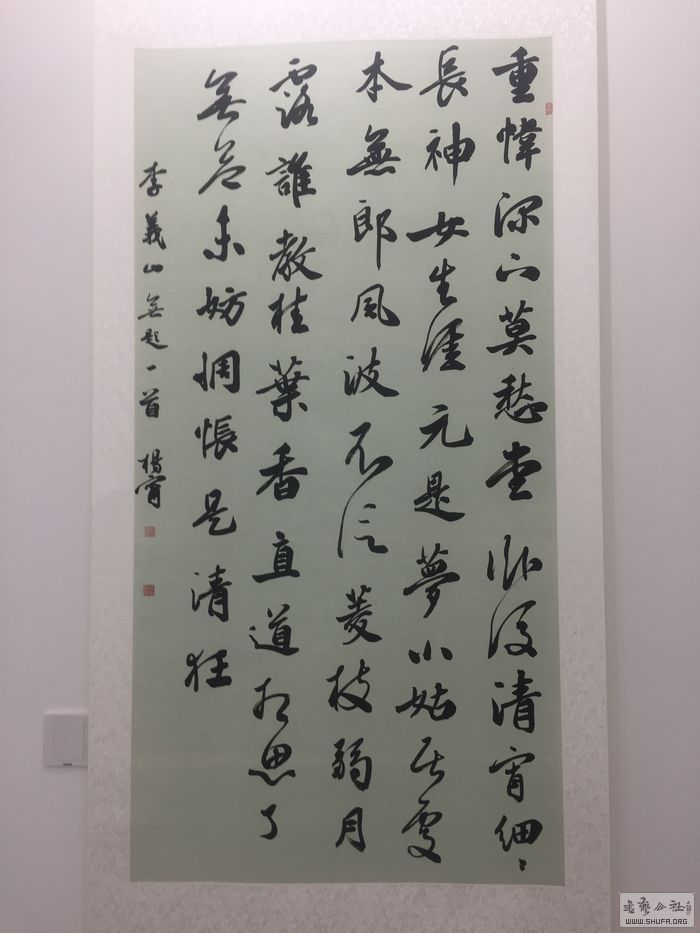 重帷深下莫愁堂卧後清宵細〻
長神女生涯元是夢小姑居處
本無郎風波不信菱枝弱月
露誰教桂葉香直道相思了
無益未妨惆悵是清狂
李義山無題一首 楊甯
書藝公社
WWW.SHUFA.ORG